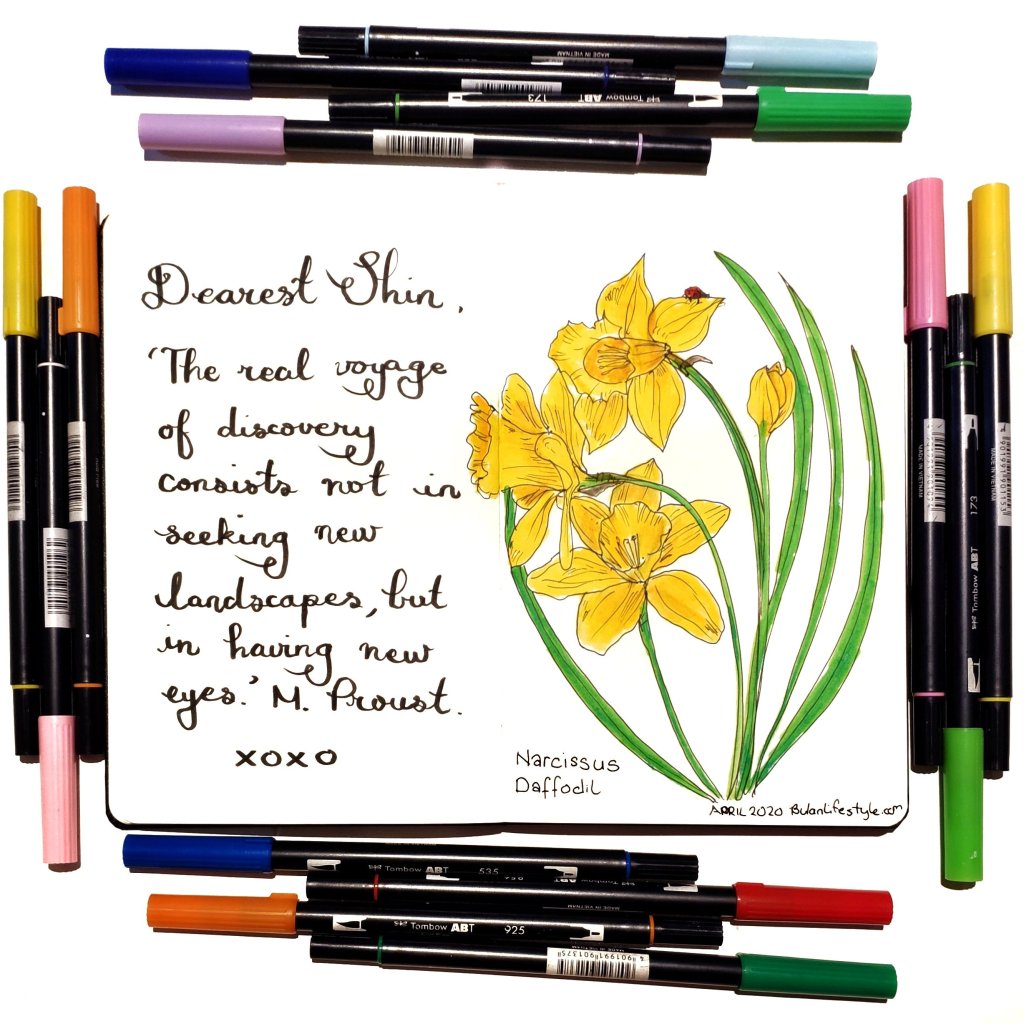 MADE IN VIETNAM
173 Tombow ABT
Dearest Shin,
'The real voyage
of discovery
consists not in
seeking new
landscapes, but
in having new
eyes.' M. Proust.
xoxo
Narcissus
Daffodil
APRIL 2020 Bulanlifestyle.com
MADE IN VIETNAM
Tombow ABT 173
4901991901153
MADE IN VIETNAM
Tombow ABT 535
MADE IN VIETNAM
Tombow ABT 925
4901991901375